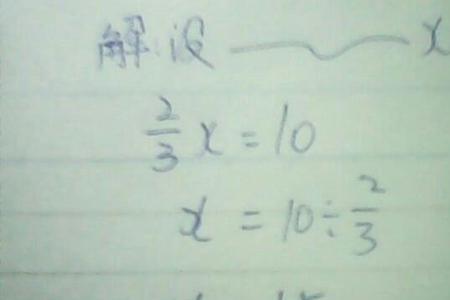 解设 x
2/3 x = 10
x = 10 ÷ 2/3